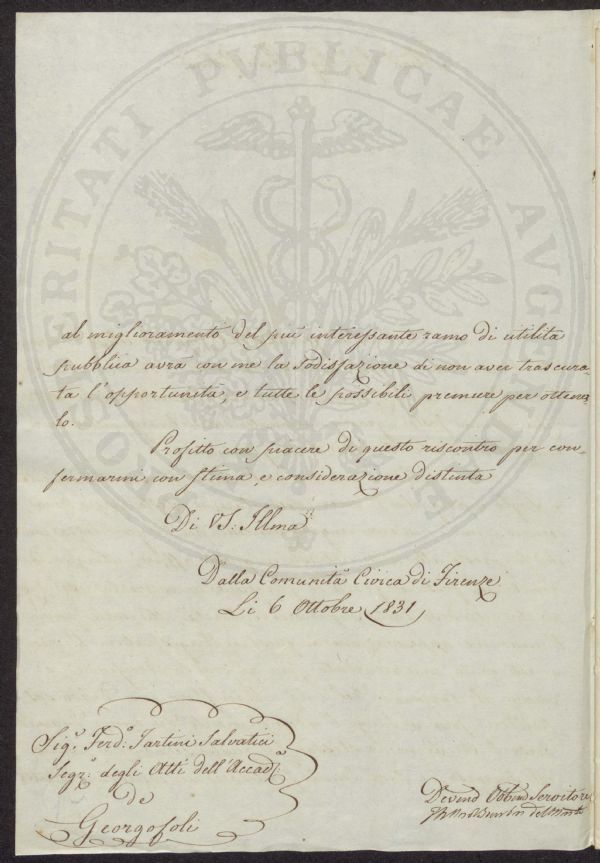 PROSPERITATI PVBLICAE AVGENDAE
al miglioramento del piú interessante ramo di utilità
pubblica avrà con me la sodisfazione di non aver trascura-
ta l'opportunità, e tutte le possibili premure per ottener-
lo.
Profitto con piacere di questo riscontro per con-
fermarmi con stima, e considerazione distinta
Di VS: Illma
Dalla Comunità Civica di Firenze
Li 6 Ottobre 1831
Sigr. Ferdo. Tartini Salvatici
Segr. degli Atti dell'Accada
de
Georgofoli
Devmo Obbmo Servitore